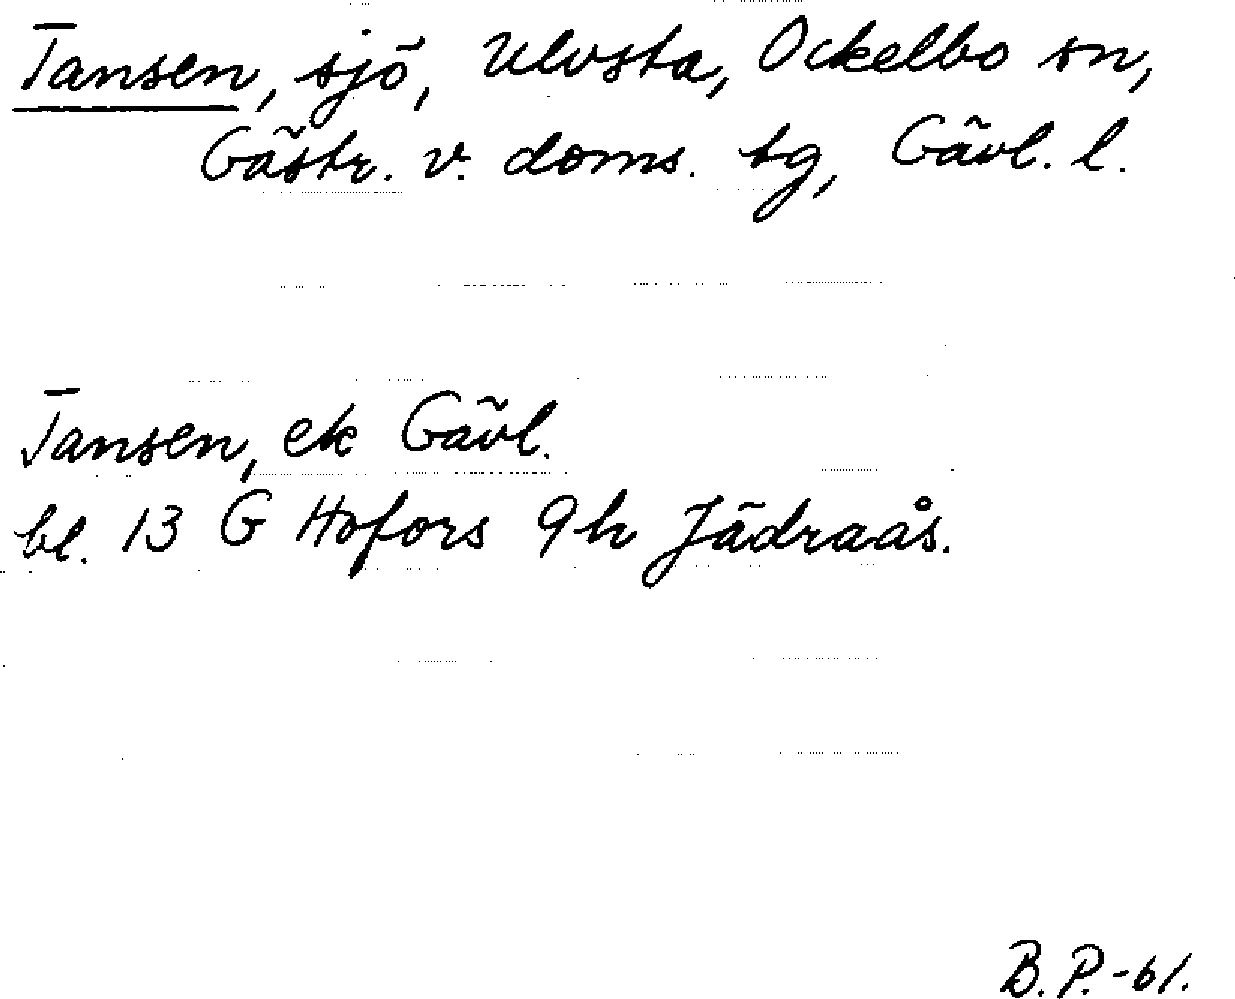 Tansen, sjö, Ulvsta, Ockelbo sn,
Gästr. v. doms. tg, Gävl. l.
Tansen, ek Gävl.
bl. 13 G Hofors 9h Jädraås.
B.P.-61.